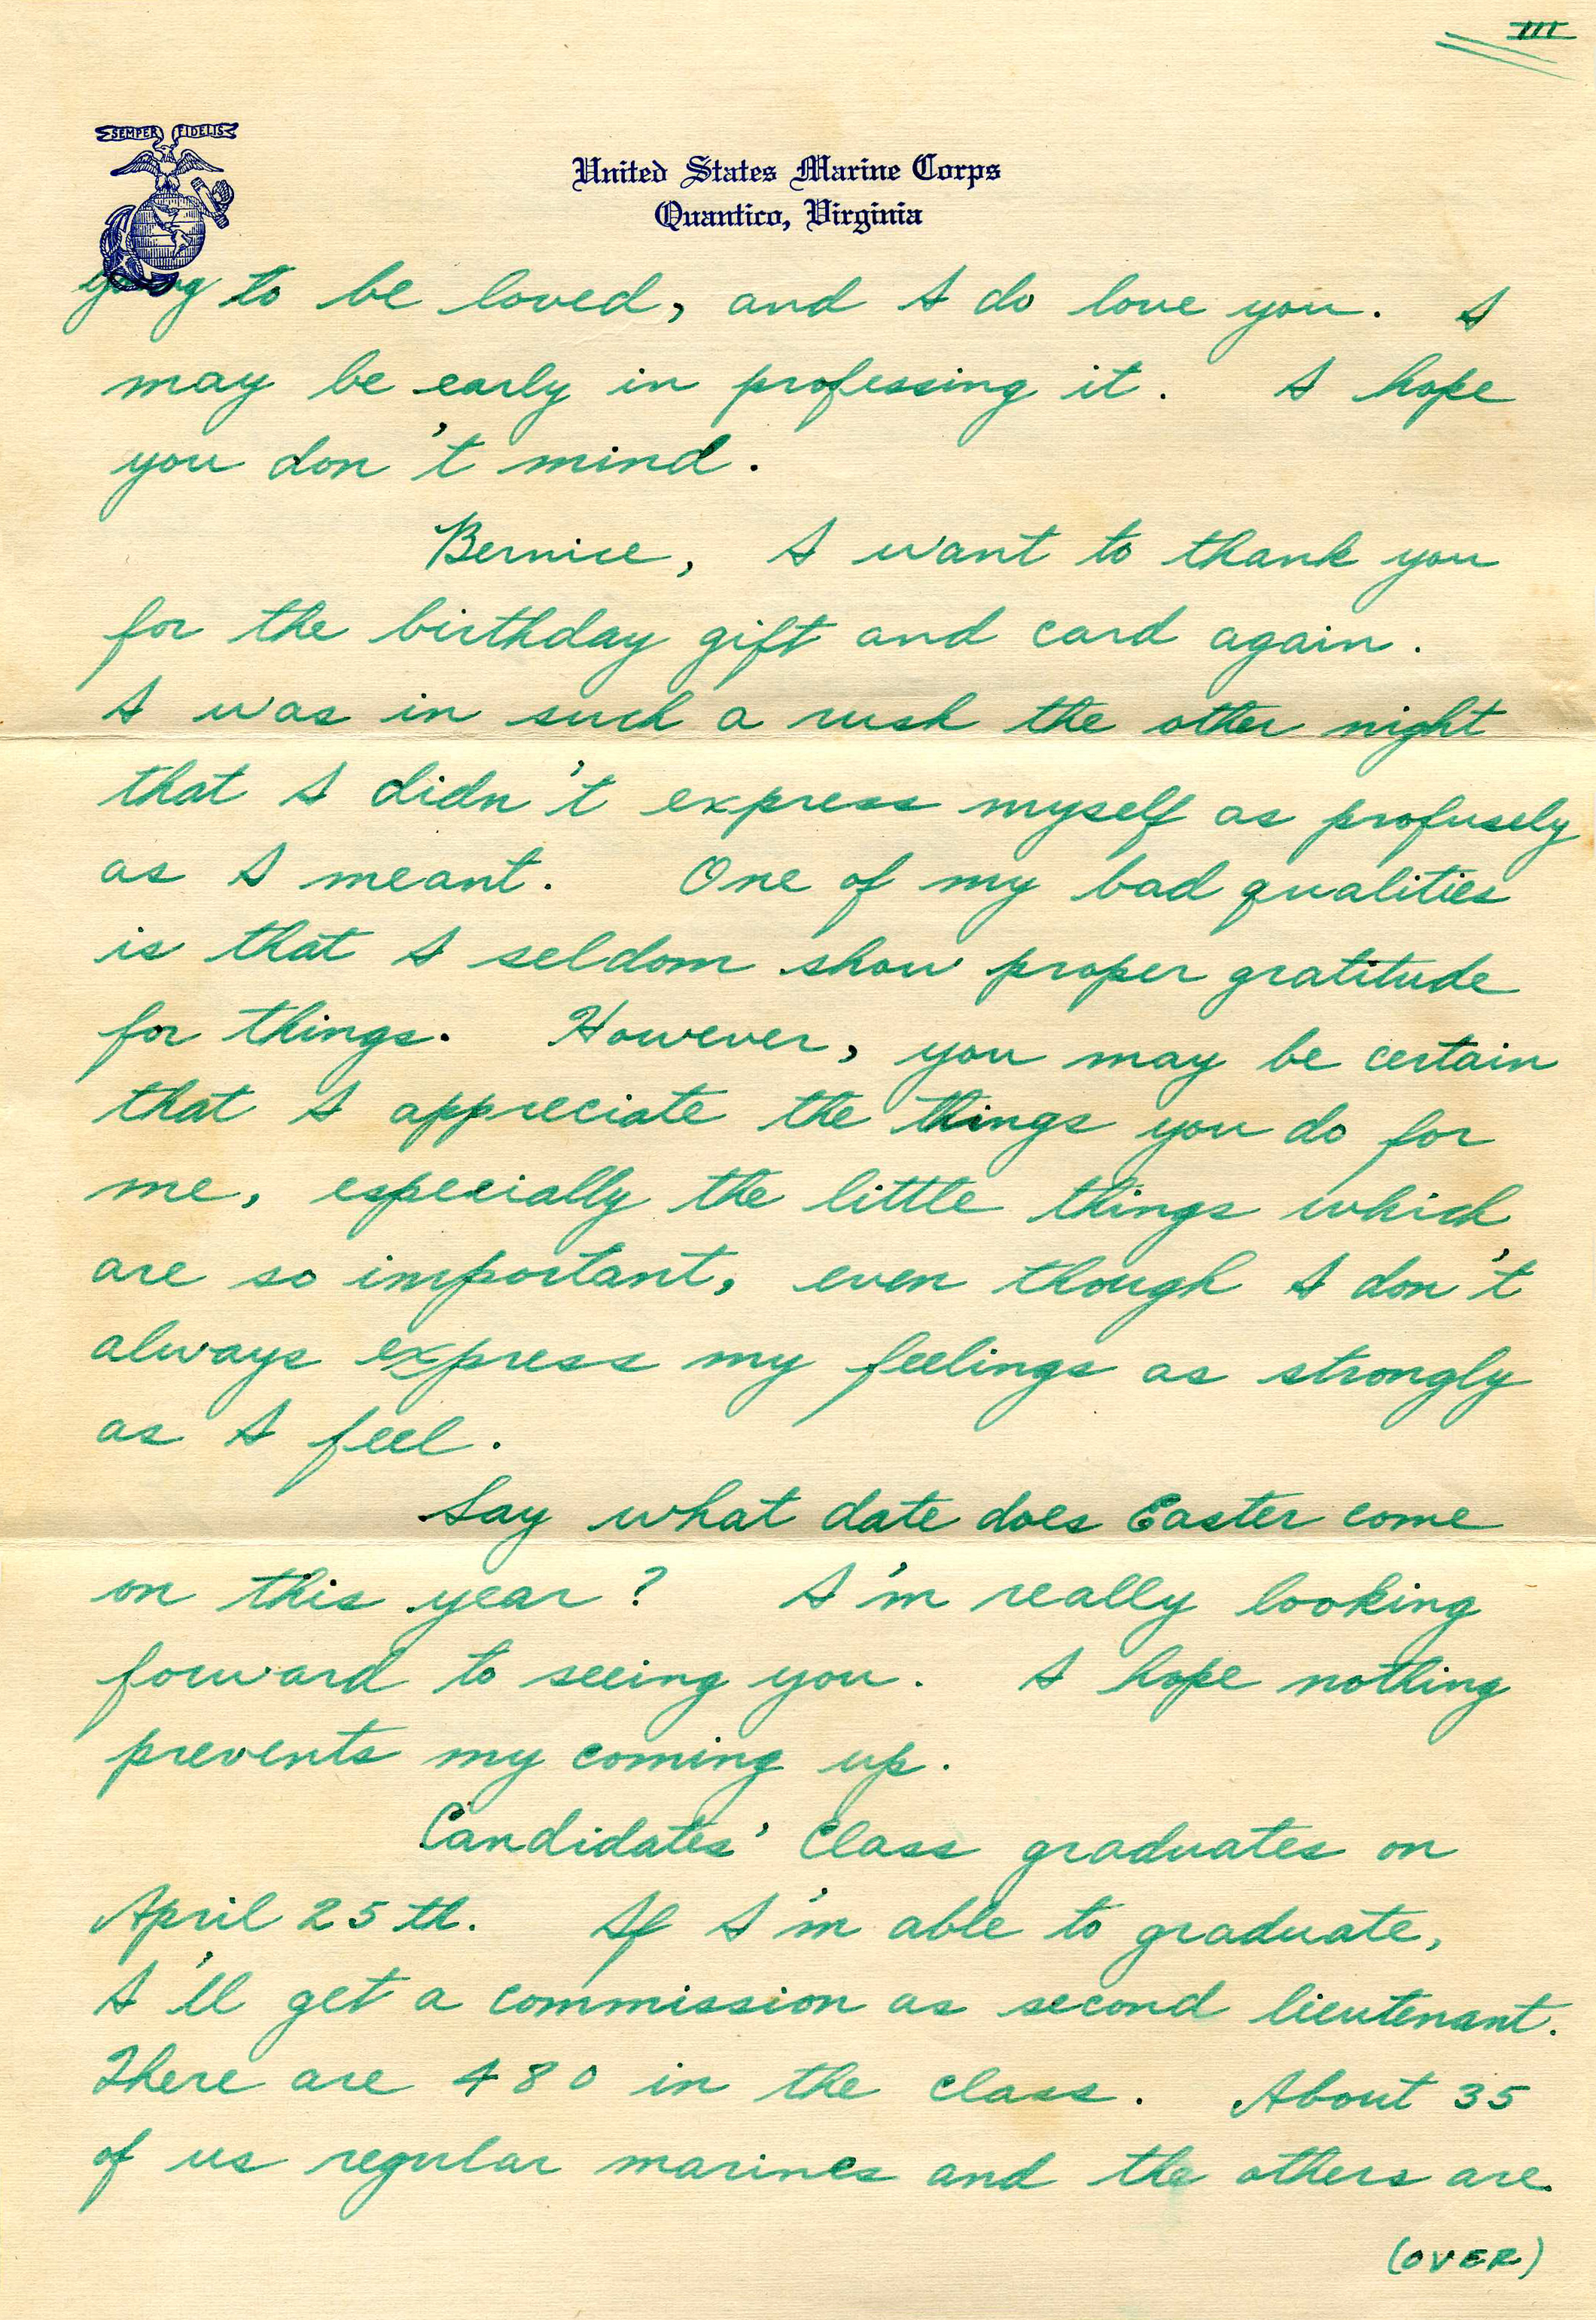 III
SEMPER FIDELIS
United States Marine Corps
Quantico, Virginia
going to be loved, and I do love you. I
may be early in professing it. I hope
you don't mind.
Bernice, I want to thank you
for the birthday gift and card again.
I was in such a rush the other night
that I didn't express myself as profusely
as I meant. One of my bad qualities
is that I seldom show proper gratitude
for things. However, you may be certain
that I appreciate the things you do for
me, especially the little things which
are so important, even though I don't
always express my feelings as strongly
as I feel.
Say what date does Easter come
on this year? I'm really looking
forward to seeing you. I hope nothing
prevents my coming up.
Candidates' Class graduates on
April 25th. If I'm able to graduate,
I'll get a commission as second lieutenant.
There are 480 in the class. About 35
of us regular marines and the others are
(OVER)